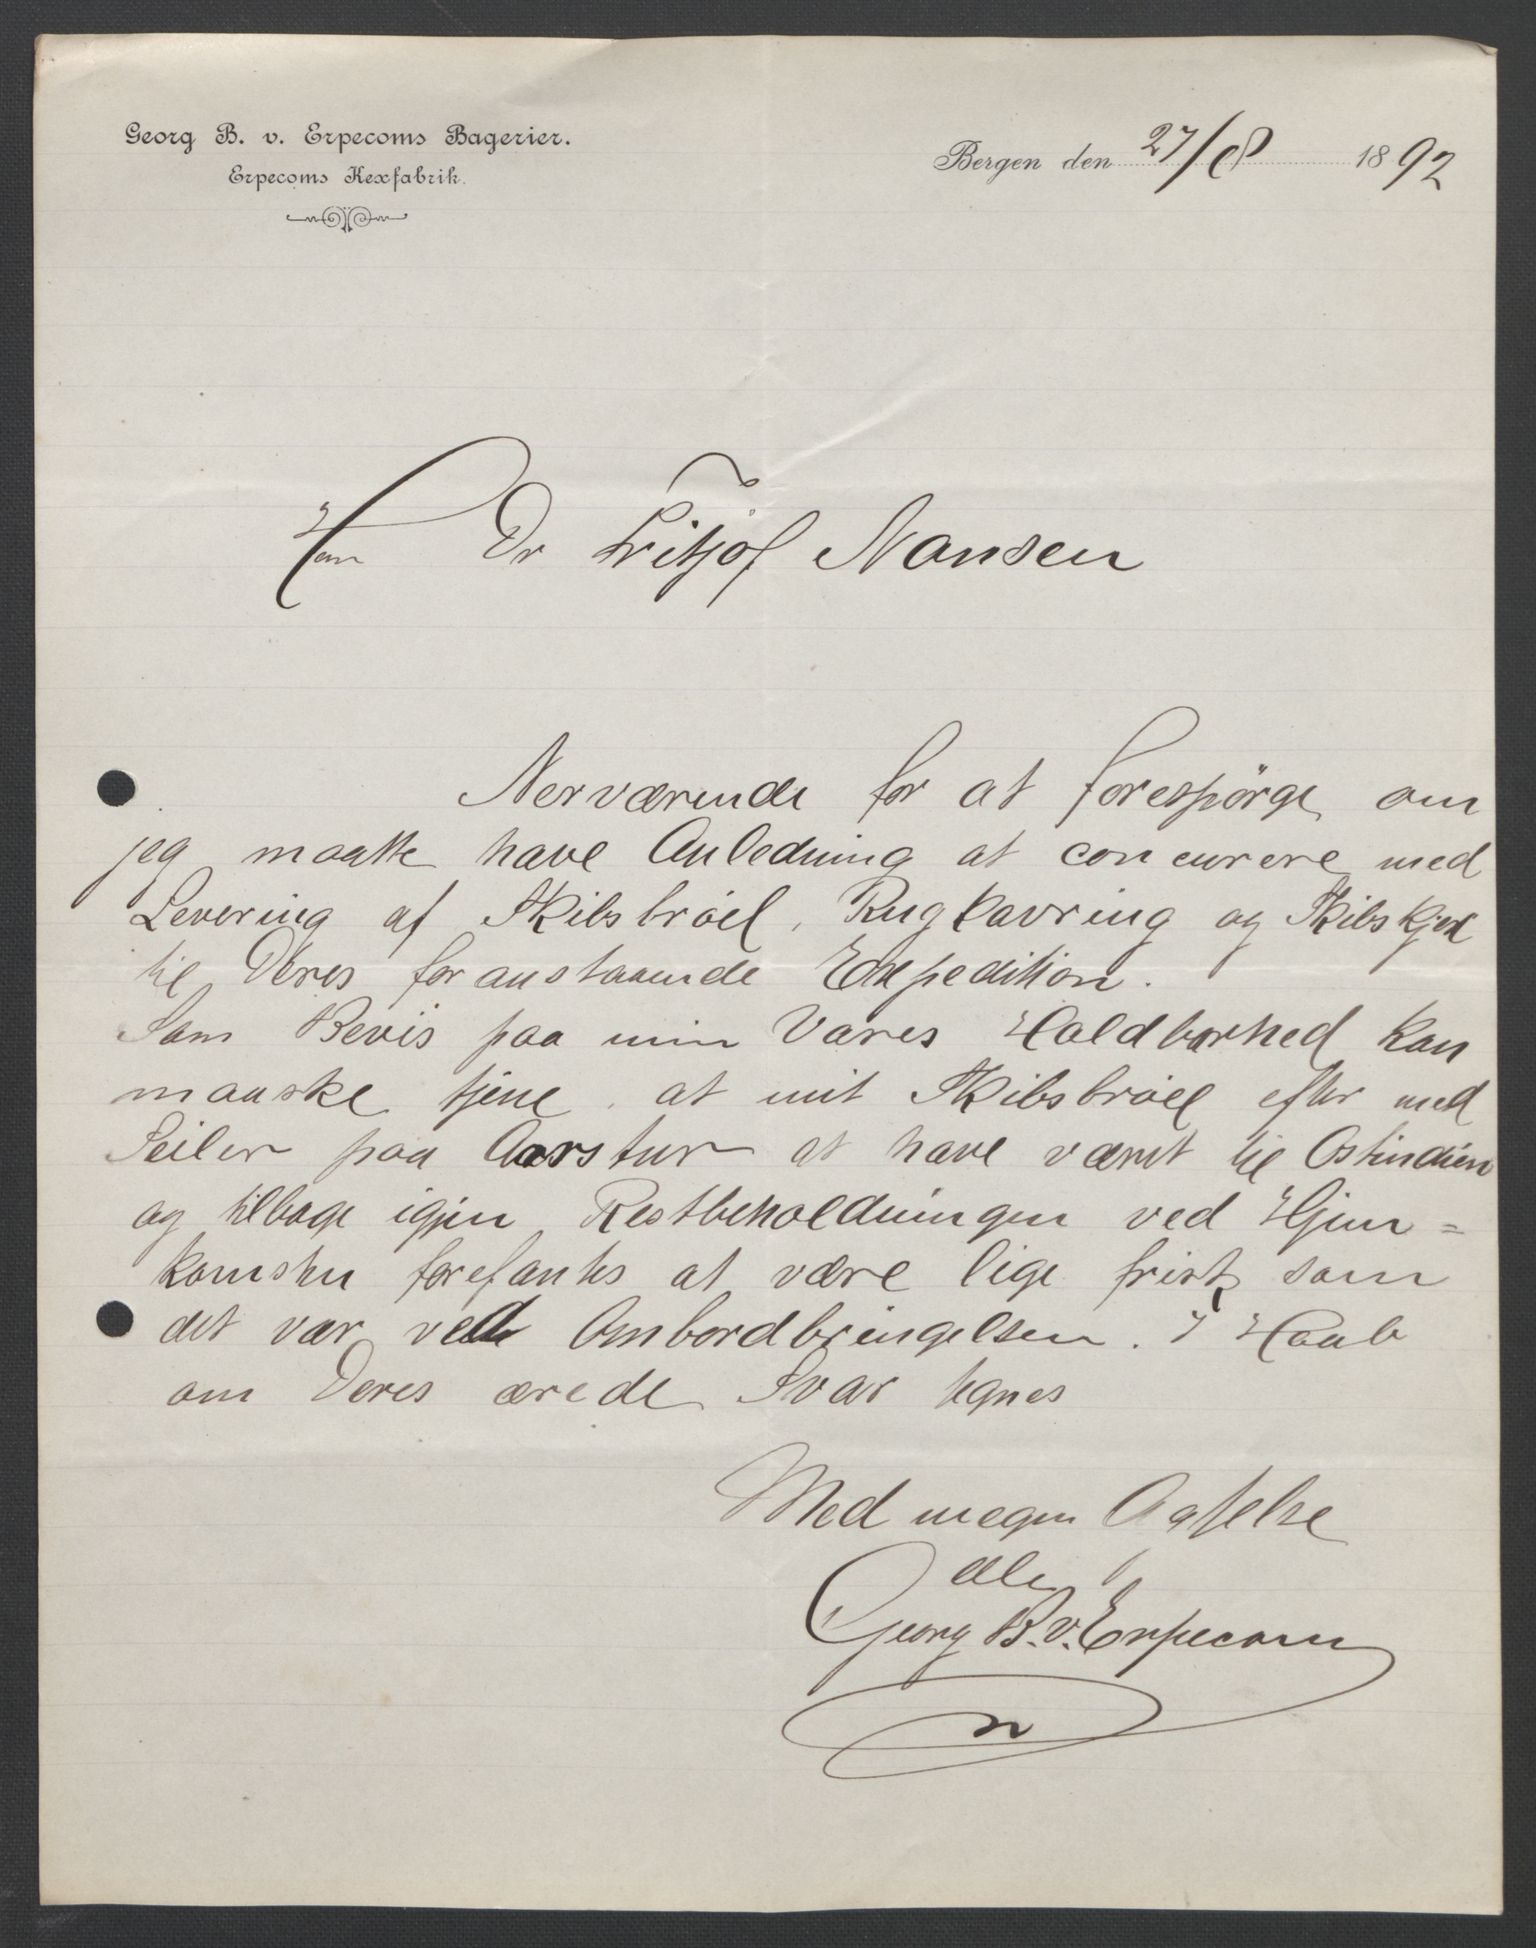 Georg B. v. Erpecoms Bagerier.
Erpecoms Kexfabrik.
Bergen den 27/8 1892
Herr Dr Fritjof Nansen
Nerværende for at forespørge om
jeg maatte have Anledning at concurere med
Levering af Skibsbrød, Rugkavring og Skibskjex
til Deres foranstaaende Expedition.
Som Bevis paa min Vares Holdbarhed kan
maaske tjene, at mit Skibsbrød efter med
Seiler paa Aarstur at have været til Ostindien
og tilbage igjen, Restbeholdningen ved Hjem=
komsten forefantes at være lige frisk som
det var ved Ombordbringelsen. I Haab
om Deres ærede Svar tegnes
Med megen Agtelse
Georg B. v. Erpecom